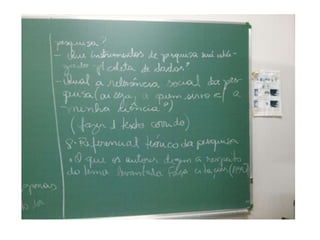 pesquisa?
- Que instrumentos de pesquisa será utili-
zado p/ coleta de dados?
- Qual a relevância social da pes-
quisa (ou seja, a quem sirvo c/ a
minha ciência?)
(fazer 1 texto corrido)
8. Referencial teórico da pesquisa
. O que os autores dizem a respeito
do tema levantado. Faça citações